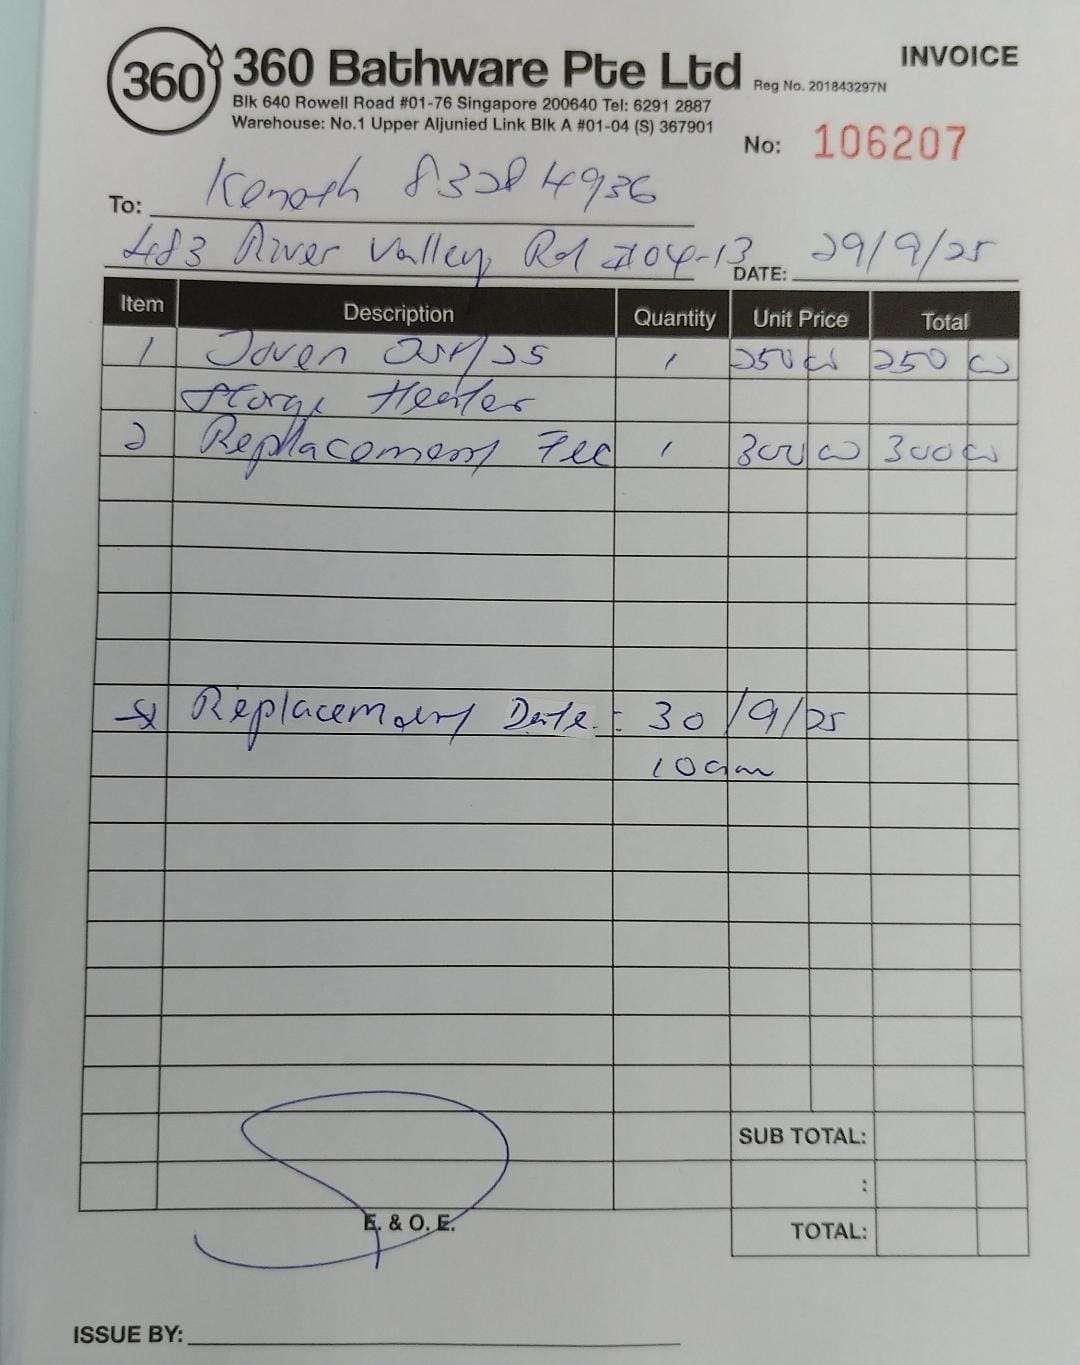 360
360 Bathware Pte Ltd
Reg No. 201843297N
INVOICE
Blk 640 Rowell Road #01-76 Singapore 200640 Tel: 6291 2887
Warehouse: No.1 Upper Aljunied Link Blk A #01-04 (S) 367901
No: 106207
To: 4936
483 River Valley Rd #04-13
DATE: 29/9/25
Item Description Quantity Unit Price Total
1 Joven 25 1 250 00 250 00
Heater
2 Replacement Fee 1 300 00 300 00
Replacement Date : 30/9/25
10am
SUB TOTAL:
:
TOTAL:
E. & O. E.
ISSUE BY: